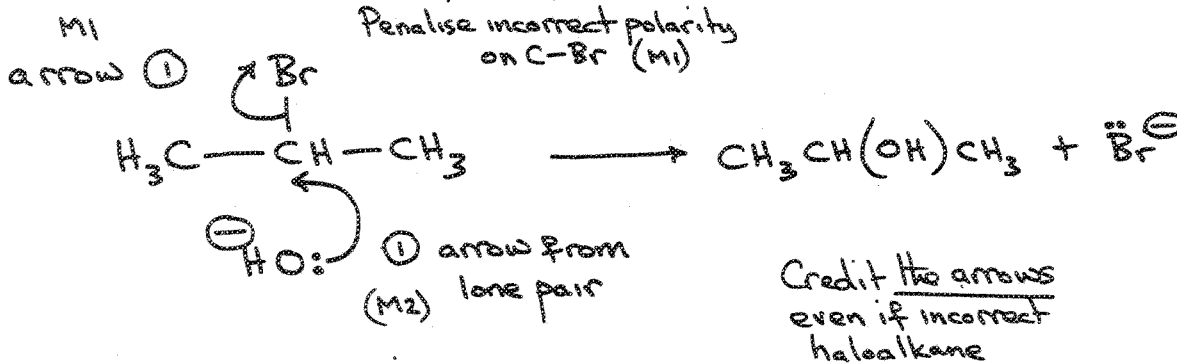 M1
Penalise incorrect polarity
on C-Br (M1)
arrow ①
Br
H₃C — CH — CH₃ → CH₃CH(OH)CH₃ + B̈r⊖
⊖HO:
① arrow from
(M2) lone pair
Credit the arrows
even if incorrect
haloalkane